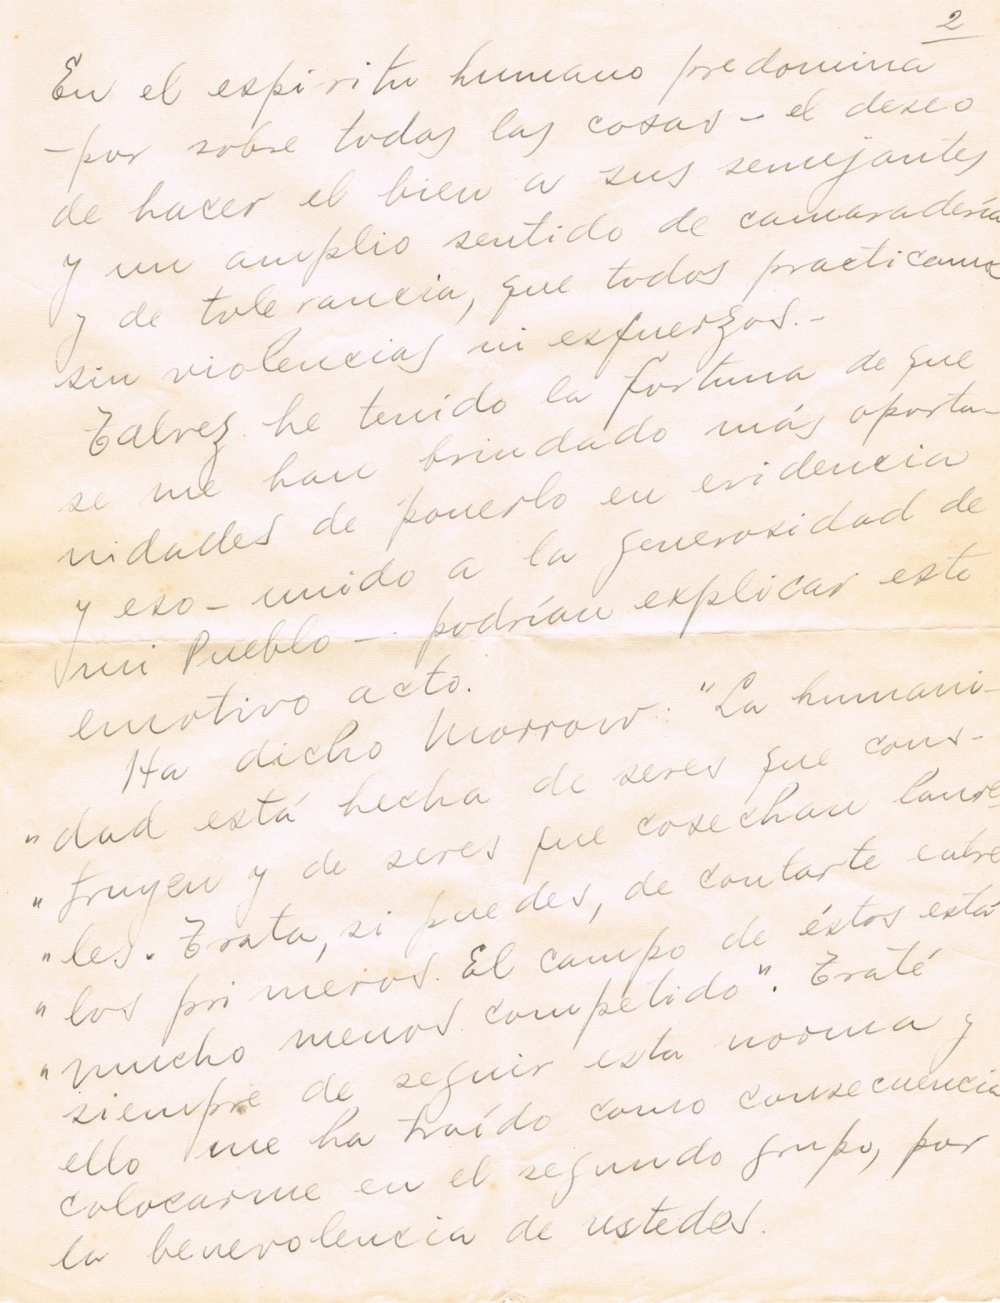 2
En el espíritu humano predomina
-por sobre todas las cosas- el deseo
de hacer el bien a sus semejantes
y un amplio sentido de camaradería
y de tolerancia, que todos practicamos
sin violencias ni esfuerzos.-
Talvez he tenido la fortuna de que
se me han brindado más oportu-
nidades de ponerlo en evidencia
y eso- unido a la generosidad de
mi Pueblo- podrían explicar este
emotivo acto.
Ha dicho Morrow: "La humani-
"dad está hecha de seres que cons-
"truyen y de seres que cosechan laure
"les. Trata, si puedes, de contarte entre
"los primeros. El campo de éstos está
"mucho menos competido". Traté
siempre de seguir esta norma y
ello me ha traído como consecuencia
colocarme en el segundo grupo, por
la benevolencia de ustedes.